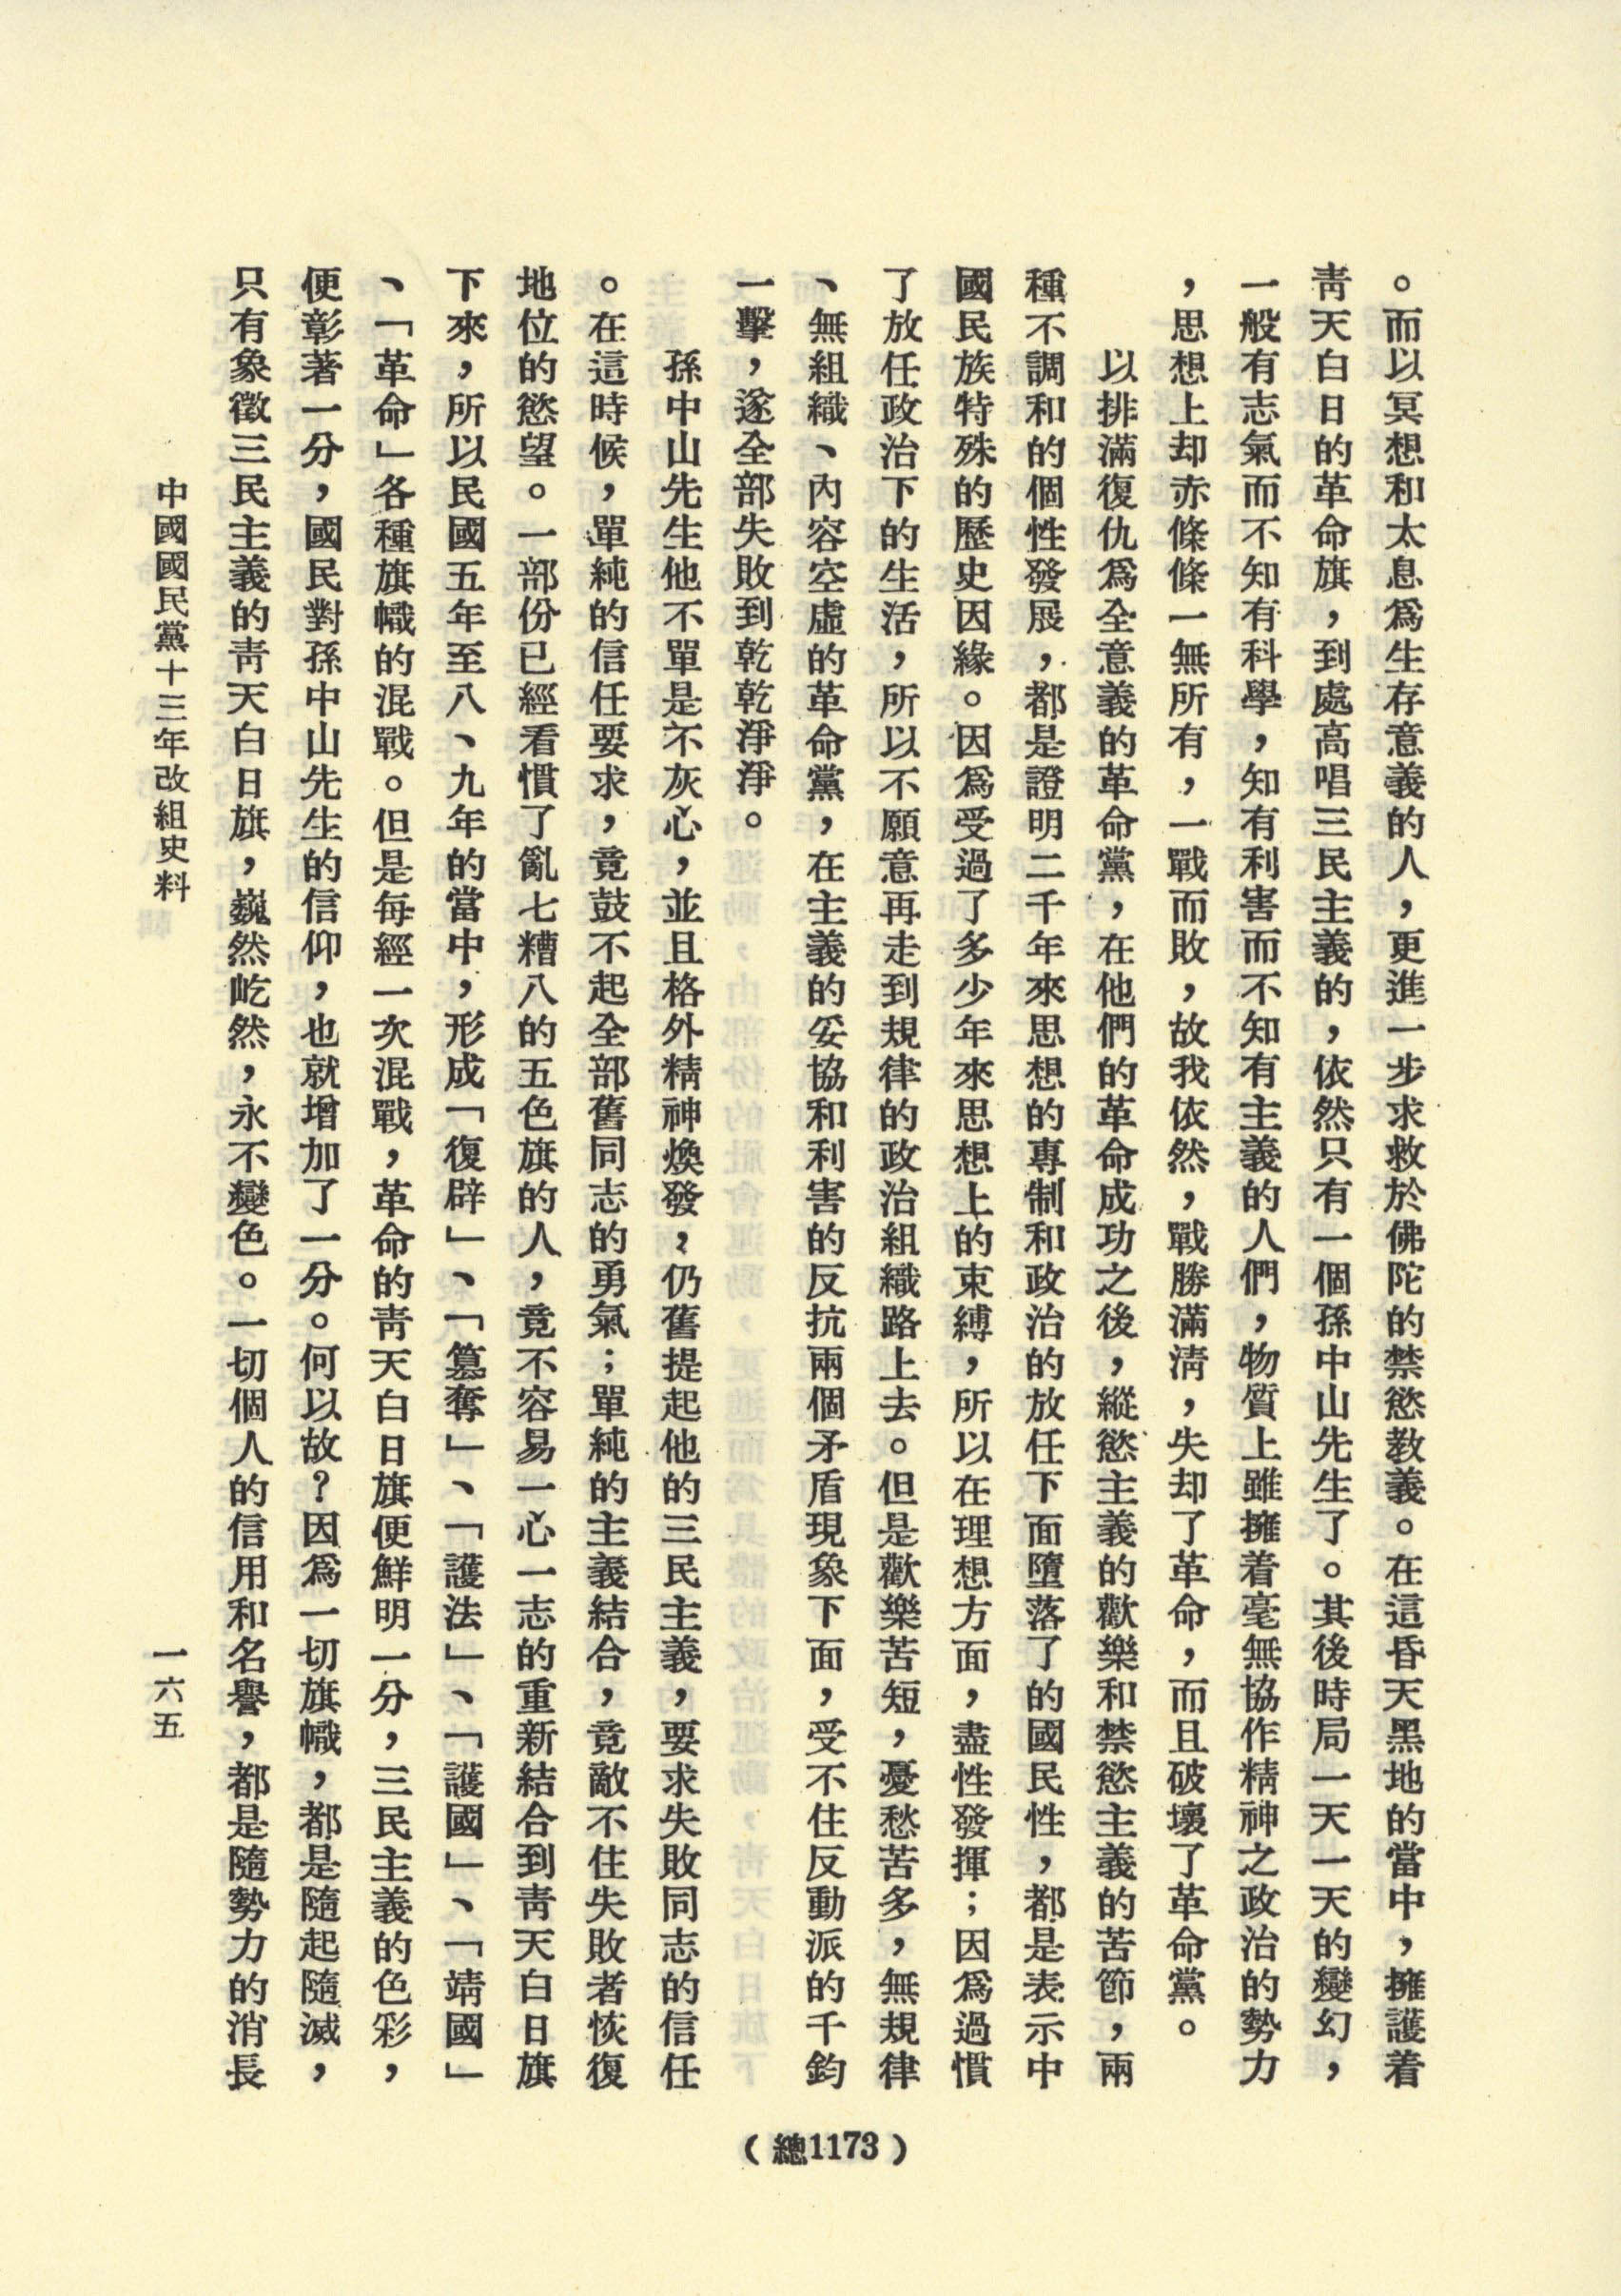 。而以冥想和太息爲生存意義的人，更進一步求救於佛陀的禁慾教義。在這昏天黑地的當中，擁護着
靑天白日的革命旗，到處高唱三民主義的，依然只有一個孫中山先生了。其後時局一天一天的變幻，
一般有志氣而不知有科學，知有利害而不知有主義的人們，物質上雖擁着毫無協作精神之政治的勢力
，思想上却赤條條一無所有，一戰而敗，故我依然，戰勝滿淸，失却了革命，而且破壞了革命黨。
以排滿復仇爲全意義的革命黨，在他們的革命成功之後，縱慾主義的歡樂和禁慾主義的苦節，兩
種不調和的個性發展，都是證明二千年來思想的專制和政治的放任下面墮落了的國民性，都是表示中
國民族特殊的歷史因緣。因爲受過了多少年來思想上的束縛，所以在理想方面，盡性發揮；因爲過慣
了放任政治下的生活，所以不願意再走到規律的政治組織路上去。但是歡樂苦短，憂愁苦多，無規律
、無組織、內容空虛的革命黨，在主義的妥協和利害的反抗兩個矛盾現象下面，受不住反動派的千鈞
一擊，遂全部失敗到乾乾淨淨。
孫中山先生他不單是不灰心，並且格外精神煥發，仍舊提起他的三民主義，要求失敗同志的信任
。在這時候，單純的信任要求，竟鼓不起全部舊同志的勇氣；單純的主義結合，竟敵不住失敗者恢復
地位的慾望。一部份已經看慣了亂七糟八的五色旗的人，竟不容易一心一志的重新結合到靑天白日旗
下來，所以民國五年至八、九年的當中，形成「復辟」、「篡奪」、「護法」、「護國」、「靖國」
、「革命」各種旗幟的混戰。但是每經一次混戰，革命的靑天白日旗便鮮明一分，三民主義的色彩，
便彰著一分，國民對孫中山先生的信仰，也就增加了一分。何以故？因爲一切旗幟，都是隨起隨滅，
只有象徵三民主義的靑天白日旗，巍然屹然，永不變色。一切個人的信用和名譽，都是隨勢力的消長
中國國民黨十三年改組史料
一六五
（總1173）